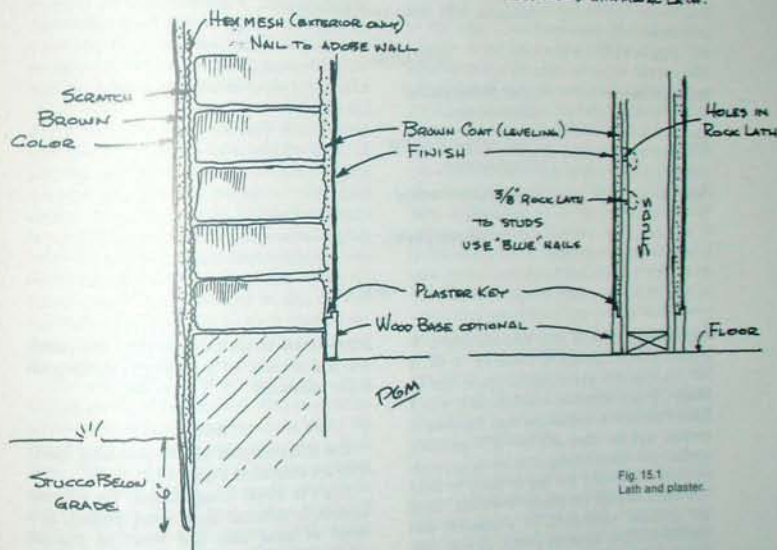 LATH.
HEX MESH (EXTERIOR ONLY)
NAIL TO ADOBE WALL
SCRATCH
BROWN
COLOR
BROWN COAT (LEVELING)
FINISH
HOLES IN
ROCK LATH
3/8" ROCK LATH
TO STUDS
USE "BLUE" NAILS
STUDS
PLASTER KEY
WOOD BASE OPTIONAL
FLOOR
PGM
STUCCO BELOW
GRADE
6"
Fig. 15.1
Lath and plaster.